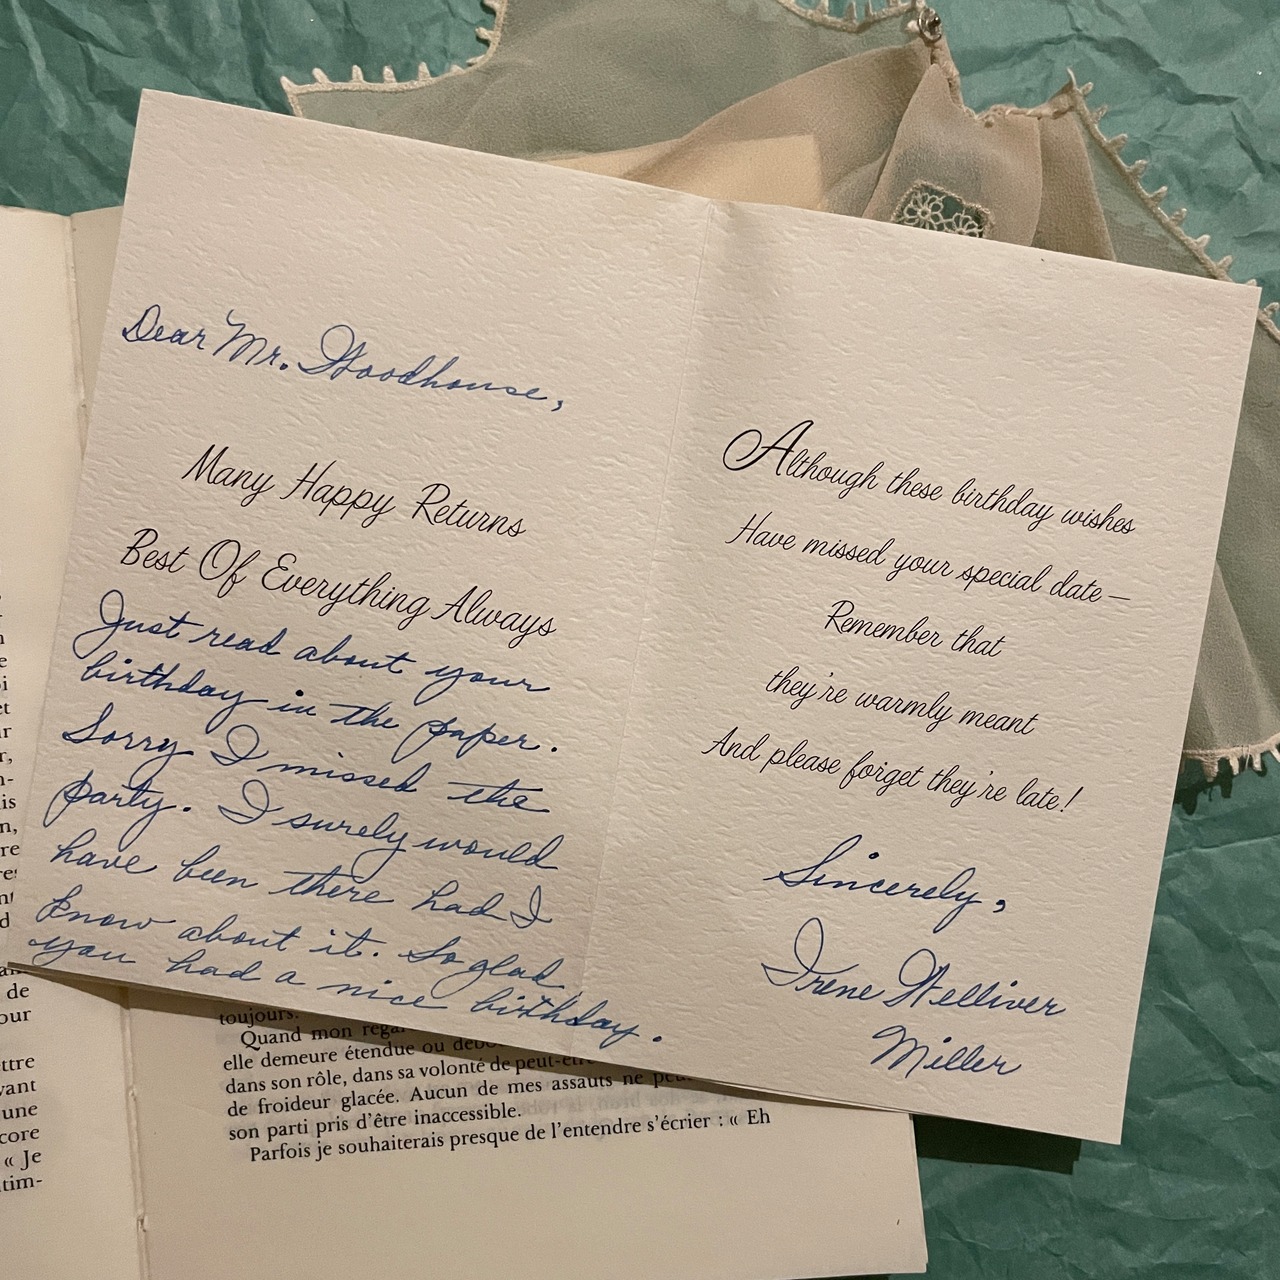 Dear Mr. Goodhouse,
Many Happy Returns
Best Of Everything Always
Just read about your
birthday in the paper.
Sorry I missed the
party. I surely would
have been there had I
know about it. So glad
you had a nice birthday.
Although these birthday wishes
Have missed your special date—
Remember that
they're warmly meant
And please forget they're late!
Sincerely,
Irene Welliver
Miller
toujours.
Quand mon
elle demeure étendue ou
dans son rôle, dans sa volonté de
de froideur glacée. Aucun de mes assauts ne
son parti pris d'être inaccessible.
Parfois je souhaiterais presque de l'entendre s'écrier : « Eh
de
une
« Je